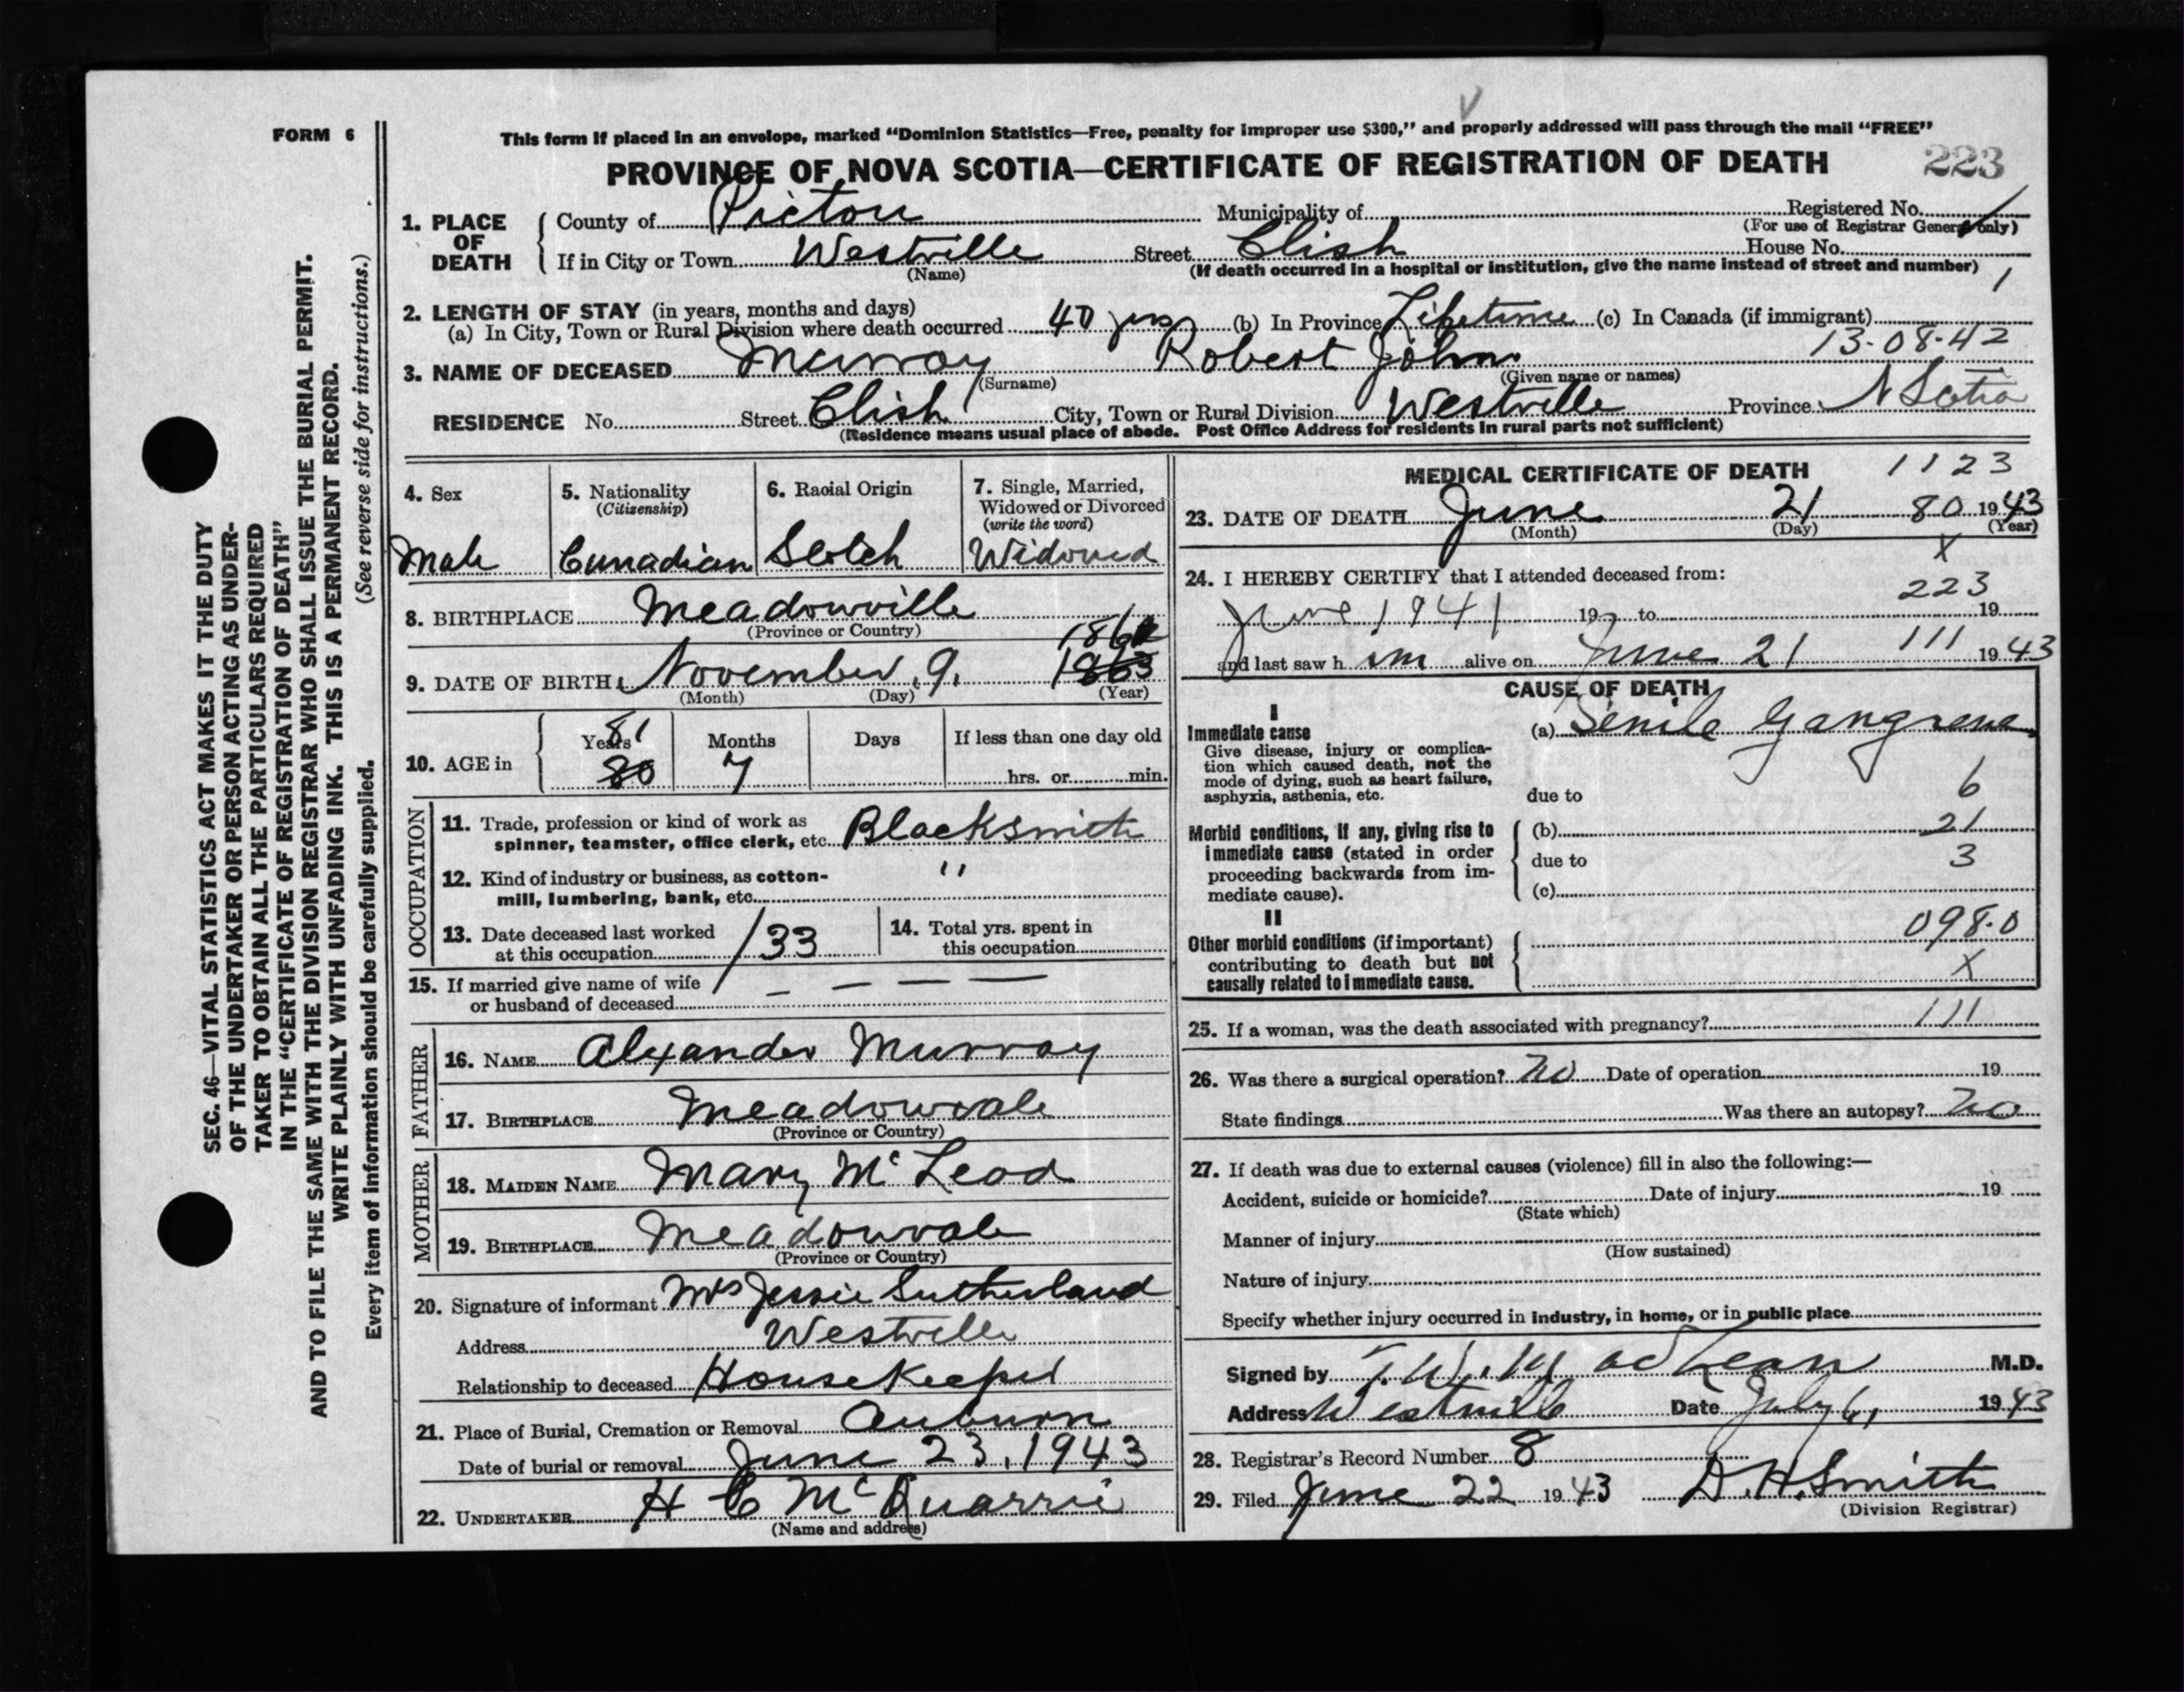 FORM 6
This form if placed in an envelope, marked "Dominion Statistics—Free, penalty for improper use $300," and properly addressed will pass through the mail "FREE"
PROVINCE OF NOVA SCOTIA—CERTIFICATE OF REGISTRATION OF DEATH 223
1. PLACE OF DEATH
County of Pictou Municipality of Registered No.
(For use of Registrar General only)
If in City or Town Westville Street Clish House No.
(Name) (If death occurred in a hospital or institution, give the name instead of street and number) 1
2. LENGTH OF STAY (in years, months and days)
(a) In City, Town or Rural Division where death occurred 40 yrs (b) In Province Lifetime (c) In Canada (if immigrant)
13-08-42
3. NAME OF DECEASED Murray Robert John
(Surname) (Given name or names)
RESIDENCE No. Street Clish City, Town or Rural Division Westville Province N Scotia
(Residence means usual place of abode. Post Office Address for residents in rural parts not sufficient)
4. Sex
Male
5. Nationality
(Citizenship)
Canadian
6. Racial Origin
Scotch
7. Single, Married,
Widowed or Divorced
(write the word)
Widowed
8. BIRTHPLACE Meadowville
(Province or Country)
9. DATE OF BIRTH November 9. 1863
(Month) (Day) (Year)
10. AGE in
Years 81 80
Months 7
Days
If less than one day old
hrs. or min.
OCCUPATION
11. Trade, profession or kind of work as
spinner, teamster, office clerk, etc. Blacksmith
12. Kind of industry or business, as cotton-
mill, lumbering, bank, etc. "
13. Date deceased last worked
at this occupation /33
14. Total yrs. spent in
this occupation
15. If married give name of wife
or husband of deceased — — — —
FATHER
16. NAME Alexander Murray
17. BIRTHPLACE Meadowvale
(Province or Country)
MOTHER
18. MAIDEN NAME Mary McLeod
19. BIRTHPLACE Meadowvale
(Province or Country)
20. Signature of informant Mrs Jessie Sutherland
Address Westville
Relationship to deceased Housekeeper
21. Place of Burial, Cremation or Removal Auburn
Date of burial or removal June 23, 1943
22. UNDERTAKER H C McQuarrie
(Name and address)
MEDICAL CERTIFICATE OF DEATH 1123
23. DATE OF DEATH June 21 80 1943
(Month) (Day) (Year)
X
24. I HEREBY CERTIFY that I attended deceased from:
223
June 1941 19 to 19
111
and last saw h im alive on June 21 1943
CAUSE OF DEATH
I
Immediate cause
Give disease, injury or complica-
tion which caused death, not the
mode of dying, such as heart failure,
asphyxia, asthenia, etc.
(a) Senile gangrene
due to 6
Morbid conditions, if any, giving rise to
immediate cause (stated in order
proceeding backwards from im-
mediate cause).
(b) 21
due to 3
(c)
II
Other morbid conditions (if important)
contributing to death but not
causally related to immediate cause.
098.0
X
25. If a woman, was the death associated with pregnancy? 111
26. Was there a surgical operation? No Date of operation 19
State findings Was there an autopsy? No
27. If death was due to external causes (violence) fill in also the following:—
Accident, suicide or homicide? Date of injury 19
(State which)
Manner of injury
(How sustained)
Nature of injury
Specify whether injury occurred in industry, in home, or in public place
Signed by T.W. MacLean M.D.
Address Westville Date July 6, 1943
28. Registrar's Record Number 8
29. Filed June 22 1943 D.H. Smith
(Division Registrar)
SEC. 46—VITAL STATISTICS ACT MAKES IT THE DUTY
OF THE UNDERTAKER OR PERSON ACTING AS UNDER-
TAKER TO OBTAIN ALL THE PARTICULARS REQUIRED
IN THE "CERTIFICATE OF REGISTRATION OF DEATH"
AND TO FILE THE SAME WITH THE DIVISION REGISTRAR WHO SHALL ISSUE THE BURIAL PERMIT.
WRITE PLAINLY WITH UNFADING INK. THIS IS A PERMANENT RECORD.
(See reverse side for instructions.)
Every item of information should be carefully supplied.